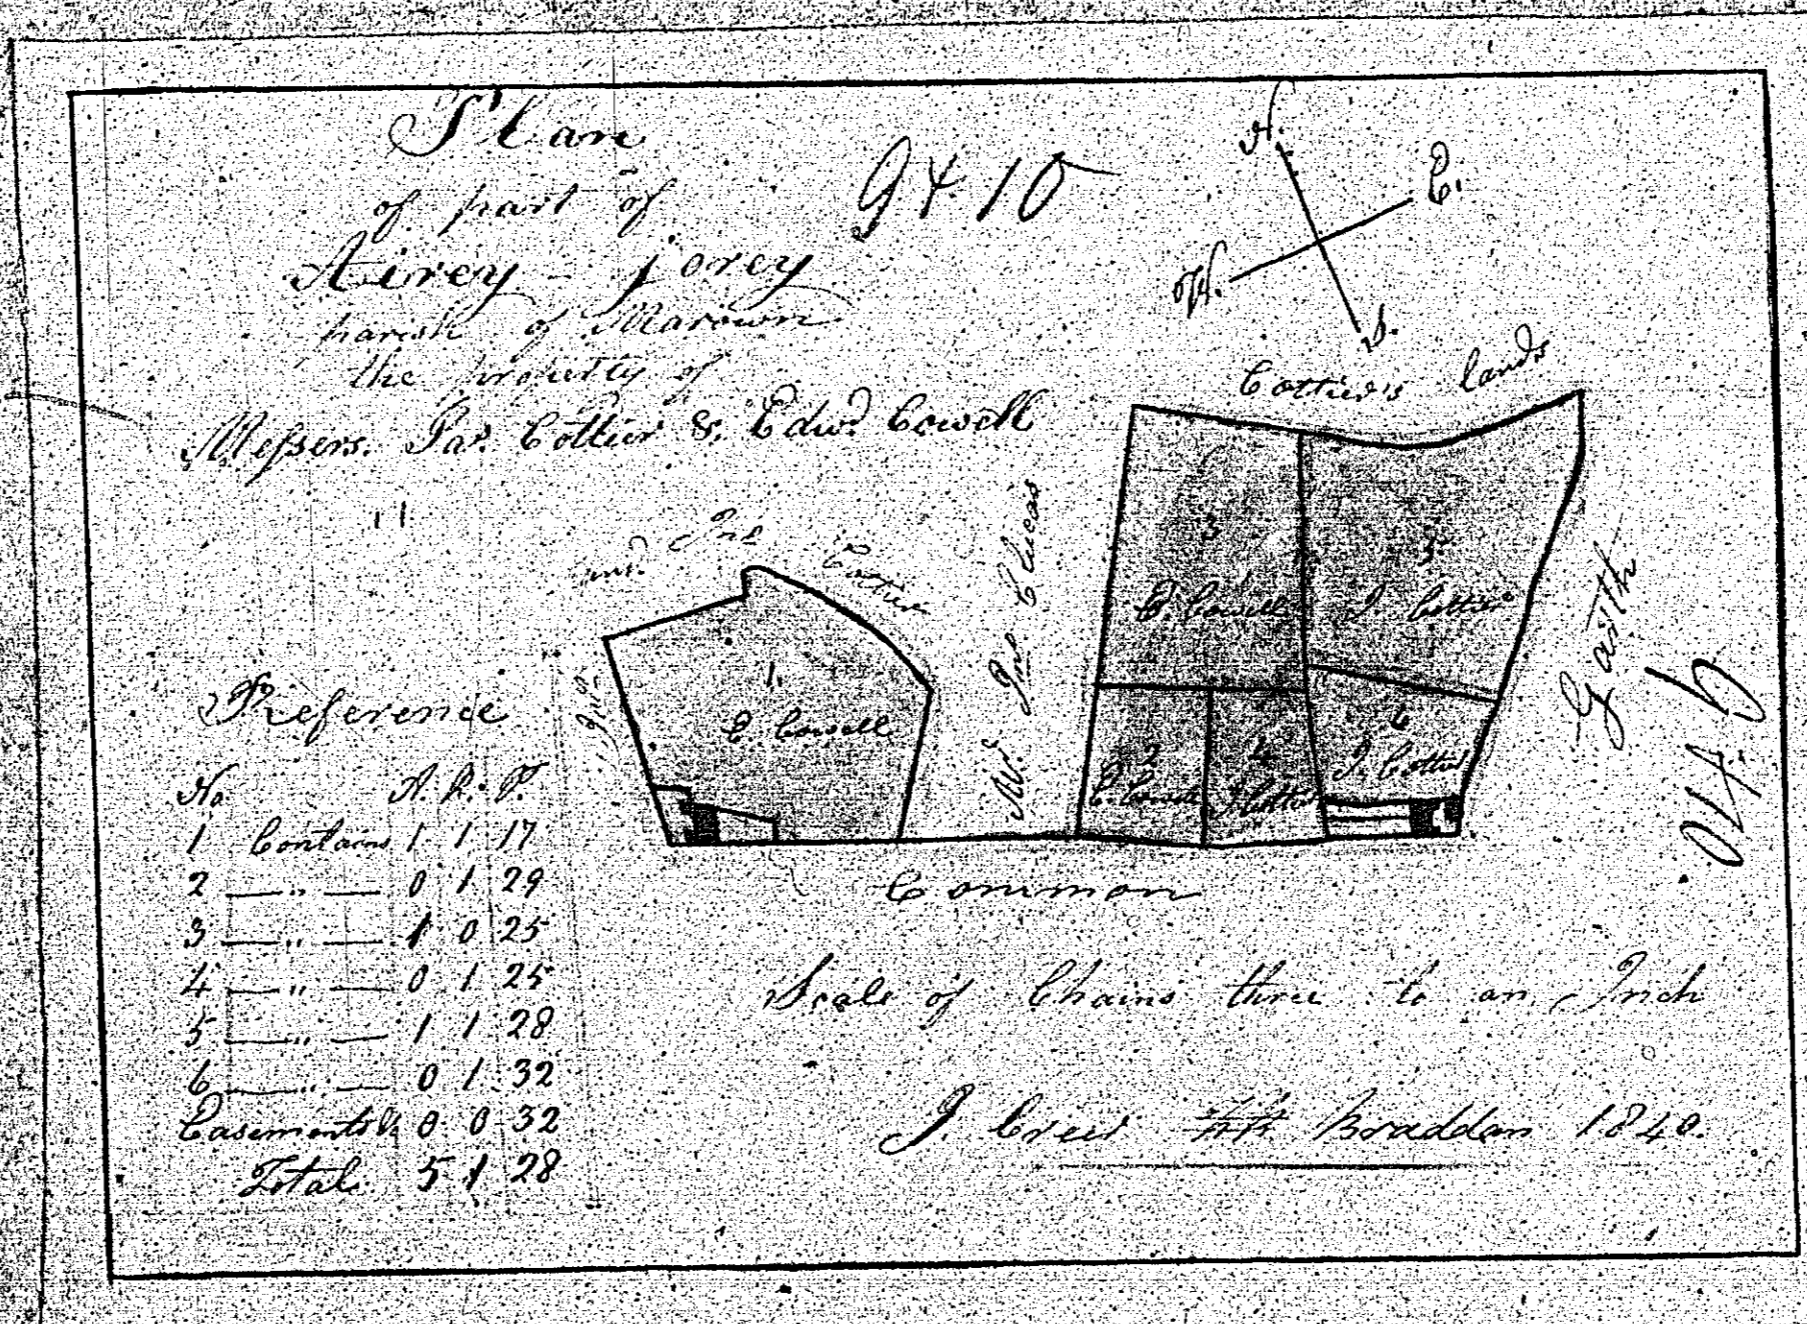 Plan
of part of
Airey-jorey
parish of Marown
the property of
Messers. Jas. Cottier & Edwd. Cowell
9410
N.
E.
W.
S.
Cottier's lands
Jno. Cottier
Mr. Jno. Clucas
Garth
9410
1.
E. Cowell
3
E. Cowell
5
J. Cottier
2
E. Cowell
4
J Cottier
6
J. Cottier
Common
Reference
No. A. R. P.
1 Contains 1 1 17
2 — " — 0 1 29
3 — " — 1 0 25
4 — " — 0 1 25
5 — " — 1 1 28
6 — " — 0 1 32
Easements &c 0 0 32
Total 5 1 28
Scale of Chains three to an Inch
J. Creer Braddan 1840.